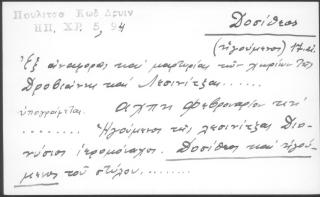 Πουλίτσα Κωδ
ΗΠ, ΧΡ. 5, 94
Δοσίθεος
(ἡγούμενος) 17 αἰ.
Ἐξ ἀναφορᾶς καὶ μαρτυρίας τῶν χωρίων τῆς
Δροβιάνης καὶ Λεσινίτζας......
ὑπογράφεται. αχπη Φεβρουαρίου
........ Ἡγούμενος τῆς Λεσινίτζας Διο-
νύσιος ἱερομόναχος. Δοσίθεος καὶ ἡγού-
μενος τοῦ στύλου.........